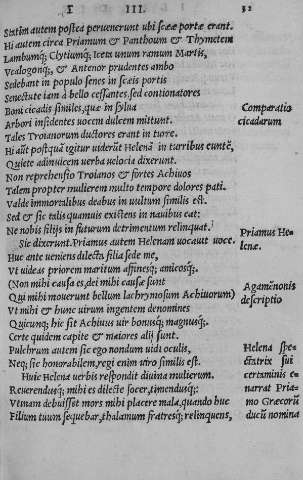 Γ III. 32
Statim autem postea peruenerunt ubi scææ portæ erant.
Hi autem circa Priamum & Panthoum & Thymœtem
Lambumq;, Clytiumq;, Iceta unum ramum Martis,
Vcalegonq;, & Antenor prudentes ambo
Sedebant in populo senes in scæis portis
Senectute iam à bello cessantes, sed contionatores
Boni cicadis similes, quæ in sylua
Comparatio
Arbori insidentes uocem dulcem mittunt.
cicadarum
Tales Troianorum ductores erant in turre.
Hi aũt postquã igitur uiderũt Helenã in turribus euntẽ,
Quiete adinuicem uerba uelocia dixerunt.
Non reprehensio Troianos & fortes Achiuos
Talem propter mulierem multo tempore dolores pati.
Valde immortalibus deabus in uultum similis est.
Sed & sic talis quamuis existens in nauibus eat:
Ne nobis filijs in futurum detrimentum relinquat.
Priamus He
Sic dixerunt. Priamus autem Helenam uocauit uoce.
lenæ.
Huc ante ueniens dilecta filia sede me,
Vt uideas priorem maritum affinesq;, amicosq;.
(Non mihi causa es, dei mihi causæ sunt
Agamẽnonis
Qui mihi mouerunt bellum lachrynosum Achiuorum)
descriptio
Vt mihi & hunc uirum ingentem denomines
Quicunq; hic sit Achiuus uir bonusq; magnusq;.
Certe quidem capite & maiores alij sunt.
Pulchrum autem sic ego nondum uidi oculis,
Helena spe
Neq; sic honorabilem, regi enim uiro similis est.
ctatrix sui
Huic Helena uerbis respondit diuina mulierum.
certaminis e
Reuerendusq; mihi es dilecte socer, timendusq;:
narrat Pria
Vtinam debuisset mors mihi placere mala, quando huc
mo Græcorũ
Filium tuum sequebar, thalamum fratresq; relinquens,
ducũ nomina